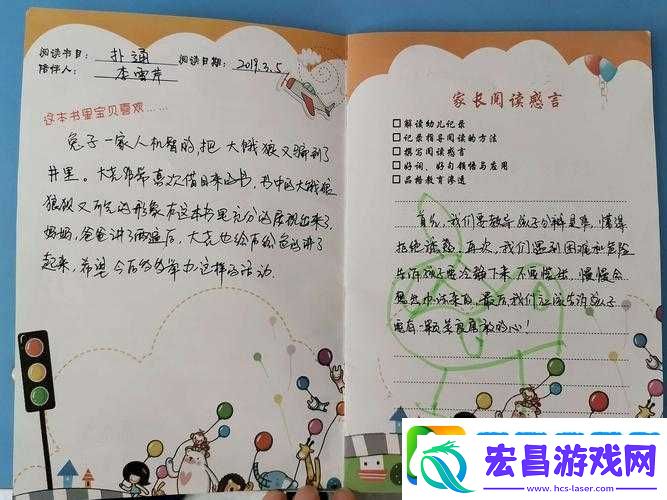 阅读书目： 扑通
陪伴人： 李雪芹 阅读日期： 2019.3.5
这本书里宝贝喜欢……
兔子一家人机智的，把大饿狼又骗到了
井里。大亮非常喜欢借回来的书，书中的大饿狼
狼狈又可气的形象在这本书里充分的展现出来了
妈妈，爸爸讲了两遍后，大亮也给爸爸讲了
起来，希望今后多多举办这样的活动。
家长阅读感言
□解读幼儿记录
□记录指导阅读的方法
□撰写阅读感言
□好词、好句领悟与应用
□品格教育渗透
首先，我们要教导孩子分辨是非，懂得
拒绝诱惑。再次，我们遇到困难和危险
告诉孩子要冷静下来，不要慌张，慢慢会
想出办法来的。最后，我们应该告诉孩子
要有一颗勇敢的心！
宏昌游戏网
www.hcs-laser.com